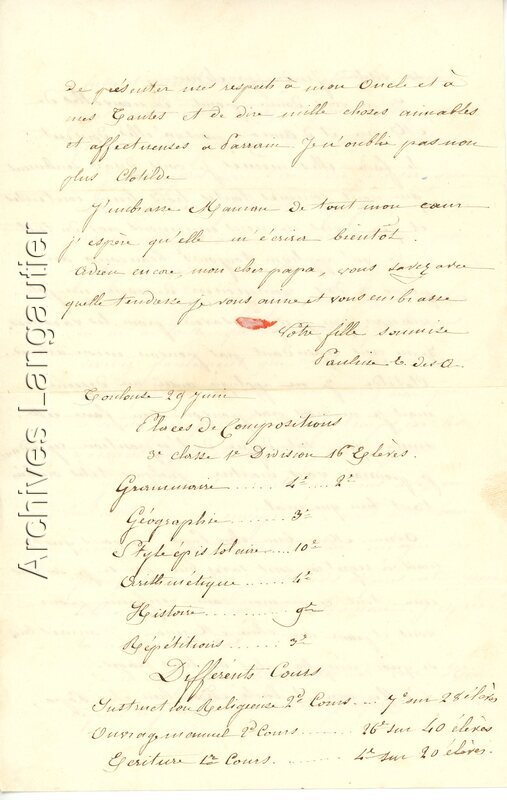 de présenter mes respects à mon Oncle et à
mes Tantes et de dire mille choses aimables
et affectueuses à Parrain Je n'oublie pas non
plus Clotilde
J'embrasse Maman de tout mon cœur
j'espère qu'elle m'écrira bientôt.
Adieu encore, mon cher papa, vous savez avec
quelle tendresse je vous aime et vous embrasse
Votre fille soumise
Pauline des A.
Toulouse 29 juin
Places de Compositions
3e classe 1e Division 16 Elèves.
Grammaire ...... 4e ... 2e
Géographie ....... 3e
Style épistolaire ... 10e
Arithmétique ...... 4e
Histoire ......... 9e
Répétitions ..... 3e
Différents Cours
Instruction Religieuse 2d Cours ... 7e sur 28 élèves
Ouvrage manuel 2d Cours ...... 26e sur 40 élèves
Ecriture 1er Cours ....... 4e sur 20 élèves.
Archives Langautier